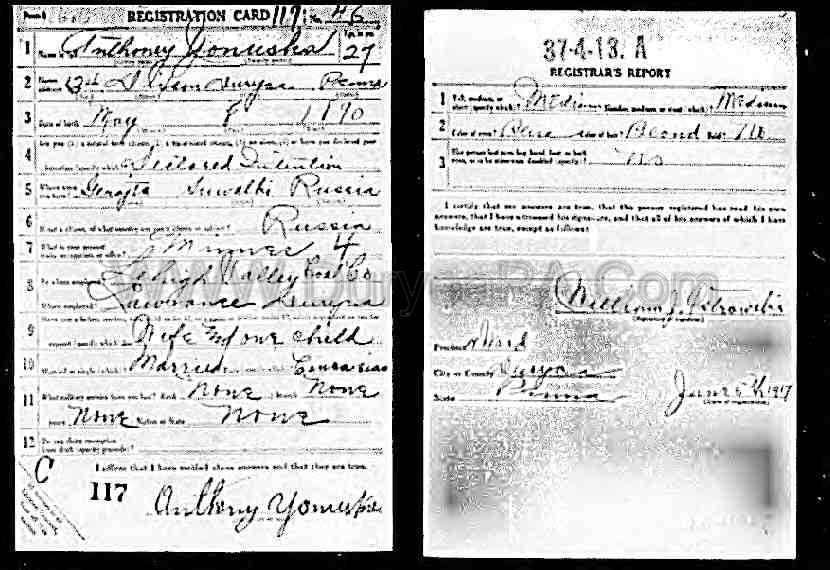 Form 1
REGISTRATION CARD 119 No. 46
1 Name in full Anthoney Yonuska Age, in yrs. 27
2 Home address Duryea Penna
3 Date of birth May 8 1890
4 Are you (1) a natural-born citizen, (2) a naturalized citizen, (3) an alien, (4) or have you declared your
intention (specify which)? Declared Intention
5 Where were you born? Suwalki Russia
6 If not a citizen, of what country are you a citizen or subject? Russia
7 What is your present trade, occupation, or office? Miner 4
8 By whom employed? Lehigh Valley Coal Co
Where employed? Lawrance Duryea
9 Have you a father, mother, wife, child under 12, or a sister or brother under 12, solely dependent on you for
support (specify which)? Wife and one child
10 Married or single (which)? Married Race (specify which)? Caucasian
11 What military service have you had? Rank None branch None
years None Nation or State None
12 Do you claim exemption
from draft (specify grounds)?
I affirm that I have verified above answers and that they are true.
C
117
Anthony Yonuska
37-4-13. A
REGISTRAR'S REPORT
1 Tall, medium, or short (specify which)? Medium Slender, medium, or stout (which)? Medium
2 Color of eyes? Blue Color of hair? Blond Bald? No
3 Has person lost arm, leg, hand, foot, or both
eyes, or is he otherwise disabled (specify)? No
I certify that my answers are true, that the person registered has read his own
answers, that I have witnessed his signature, and that all of his answers of which I have
knowledge are true, except as follows:
www.DuryeaPA.Com
William J.
(Signature of registrar)
Precinct Ward
City or County Duryea
State Penna June 5th 1917
(Date of registration)